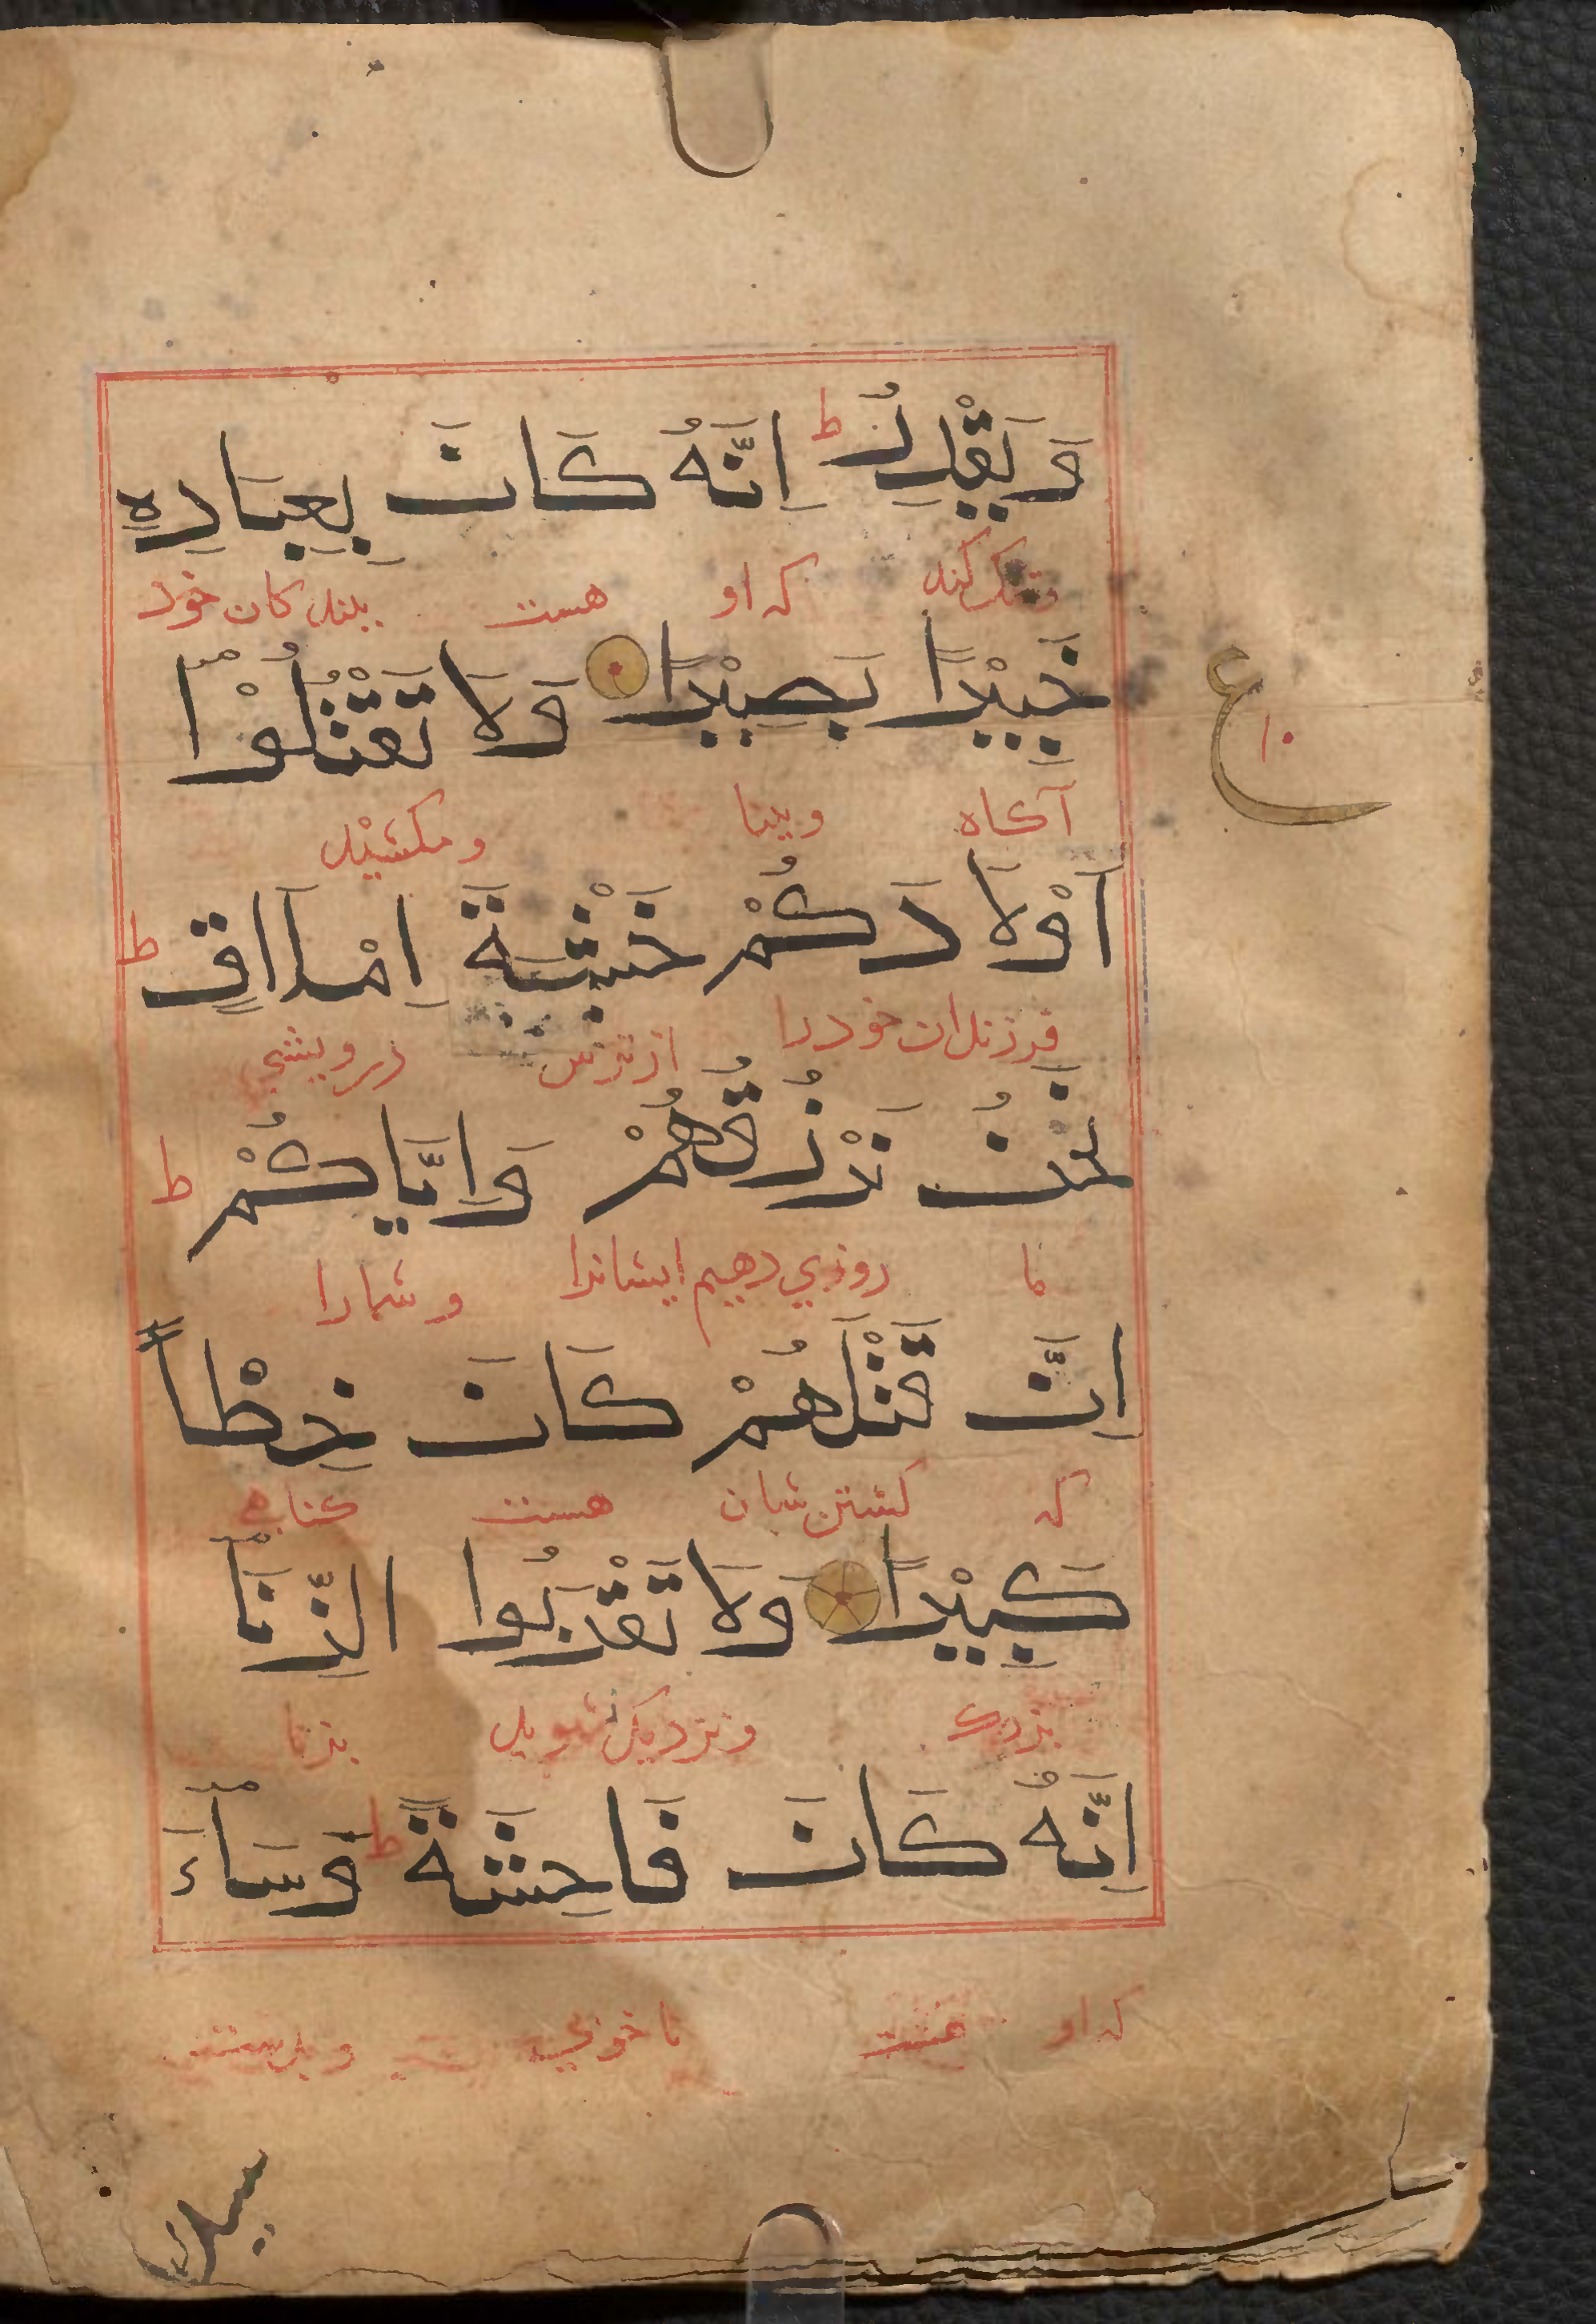 وَيَقْدِرُ ط اِنَّهُ كَانَ بِعِبَادِهٖ
وتنک کند که او هست ببندکان خود
خَبِيْرًا بَصِيْرًا وَلَا تَقْتُلُوْا
آکاه وبینا ومکشید
ع
۱۰
اَوْلَادَكُمْ خَشْيَةَ اِمْلَاقٍ ط
فرزندان خودرا از ترس درویشی
نَحْنُ نَرْزُقُهُمْ وَاِيَّاكُمْ ط
ما روزی دهیم ایشانرا وشمارا
اِنَّ قَتْلَهُمْ كَانَ خِطْاً
که کشتن شان هست کناهی
كَبِيْرًا وَلَا تَقْرَبُوا الزِّنَا
بزرک ونزدیک نشوید بزنا
اِنَّهُ كَانَ فَاحِشَةً ط وَسَاءَ
که او هست ناخوبی وبدست
سبيلا